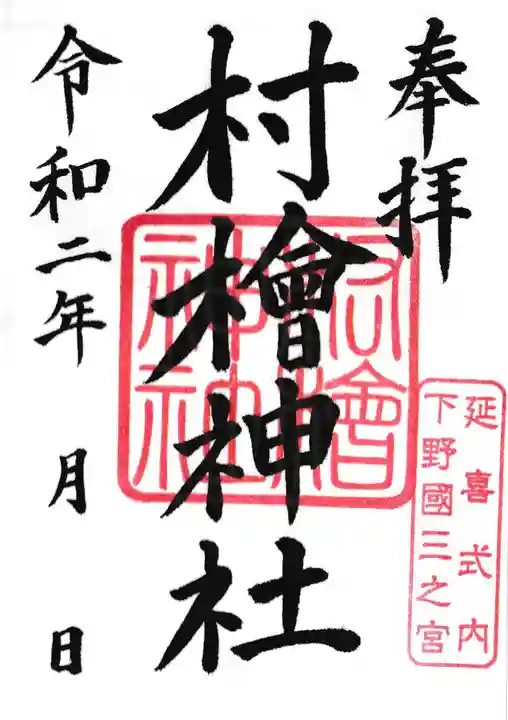 奉拝
延喜式内
下野國三之宮
村檜神社
令和二年 月 日